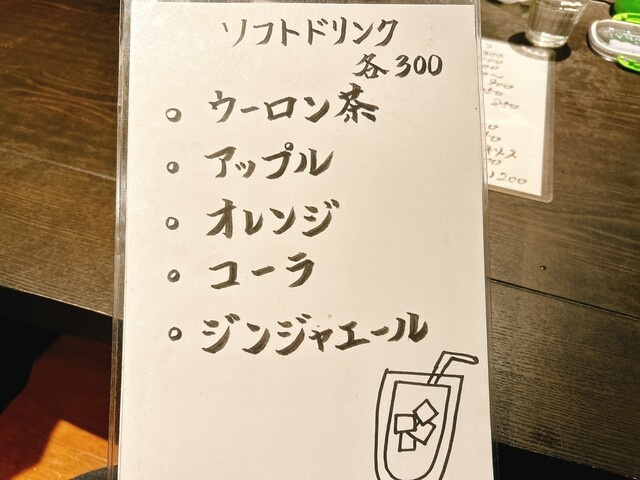 ソフトドリンク
各300
○ ウーロン茶
○ アップル
○ オレンジ
○ コーラ
○ ジンジャエール
200